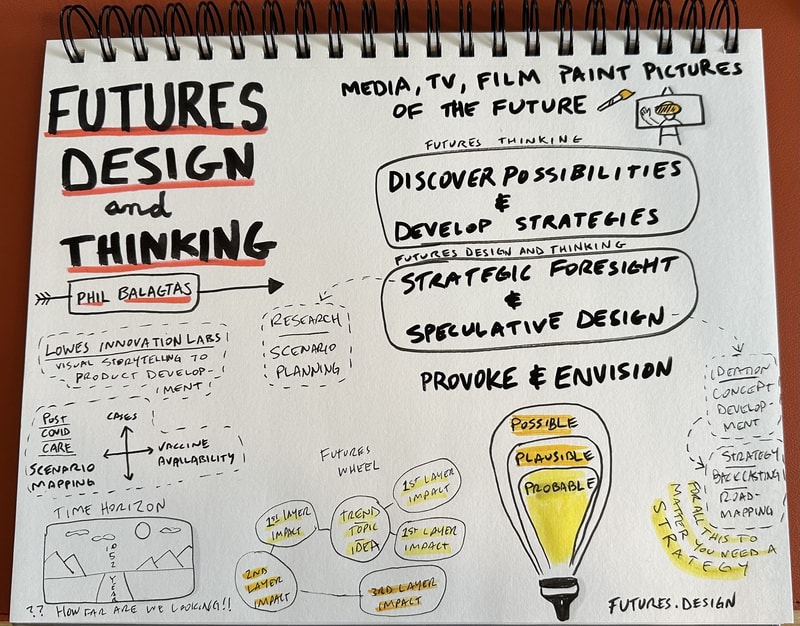 FUTURES
DESIGN
and
THINKING
PHIL BALAGTAS
MEDIA, TV, FILM PAINT PICTURES
OF THE FUTURE
FUTURES THINKING
DISCOVER POSSIBILITIES
&
DEVELOP STRATEGIES
FUTURES DESIGN AND THINKING
STRATEGIC FORESIGHT
&
SPECULATIVE DESIGN
PROVOKE & ENVISION
RESEARCH
SCENARIO
PLANNING
LOWES INNOVATION LABS
VISUAL STORYTELLING TO
PRODUCT DEVELOP-
MENT
POST
COVID
CARE
SCENARIO
MAPPING
CASES
VACCINE
AVAILABILITY
TIME HORIZON
10
5
2
YEAR
?? HOW FAR ARE WE LOOKING!!
FUTURES
WHEEL
1ST LAYER
IMPACT
TREND
TOPIC
IDEA
1ST LAYER
IMPACT
1ST LAYER
IMPACT
2ND
LAYER
IMPACT
3RD LAYER
IMPACT
POSSIBLE
PLAUSIBLE
PROBABLE
IDEATION
CONCEPT
DEVELOP-
MENT
STRATEGY
BACKCASTING
ROAD-
MAPPING
FOR ALL THIS TO
MATTER YOU NEED A
STRATEGY
FUTURES.DESIGN